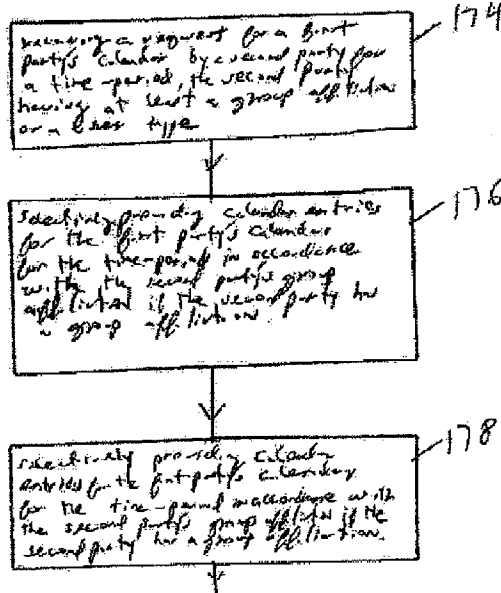 174
receiving a request for a first
party's calendar by a second party for
a time-period, the second party
having at least a group affiliation
or a user type
176
selectively providing calendar entries
for the first party's calendar
for the time-period in accordance
with the second party's group
affiliation if the second party has
a group affiliation
178
selectively providing calendar
entries for the first party's calendar
for the time-period in accordance with
the second party's group affiliation if the
second party has a group affiliation.